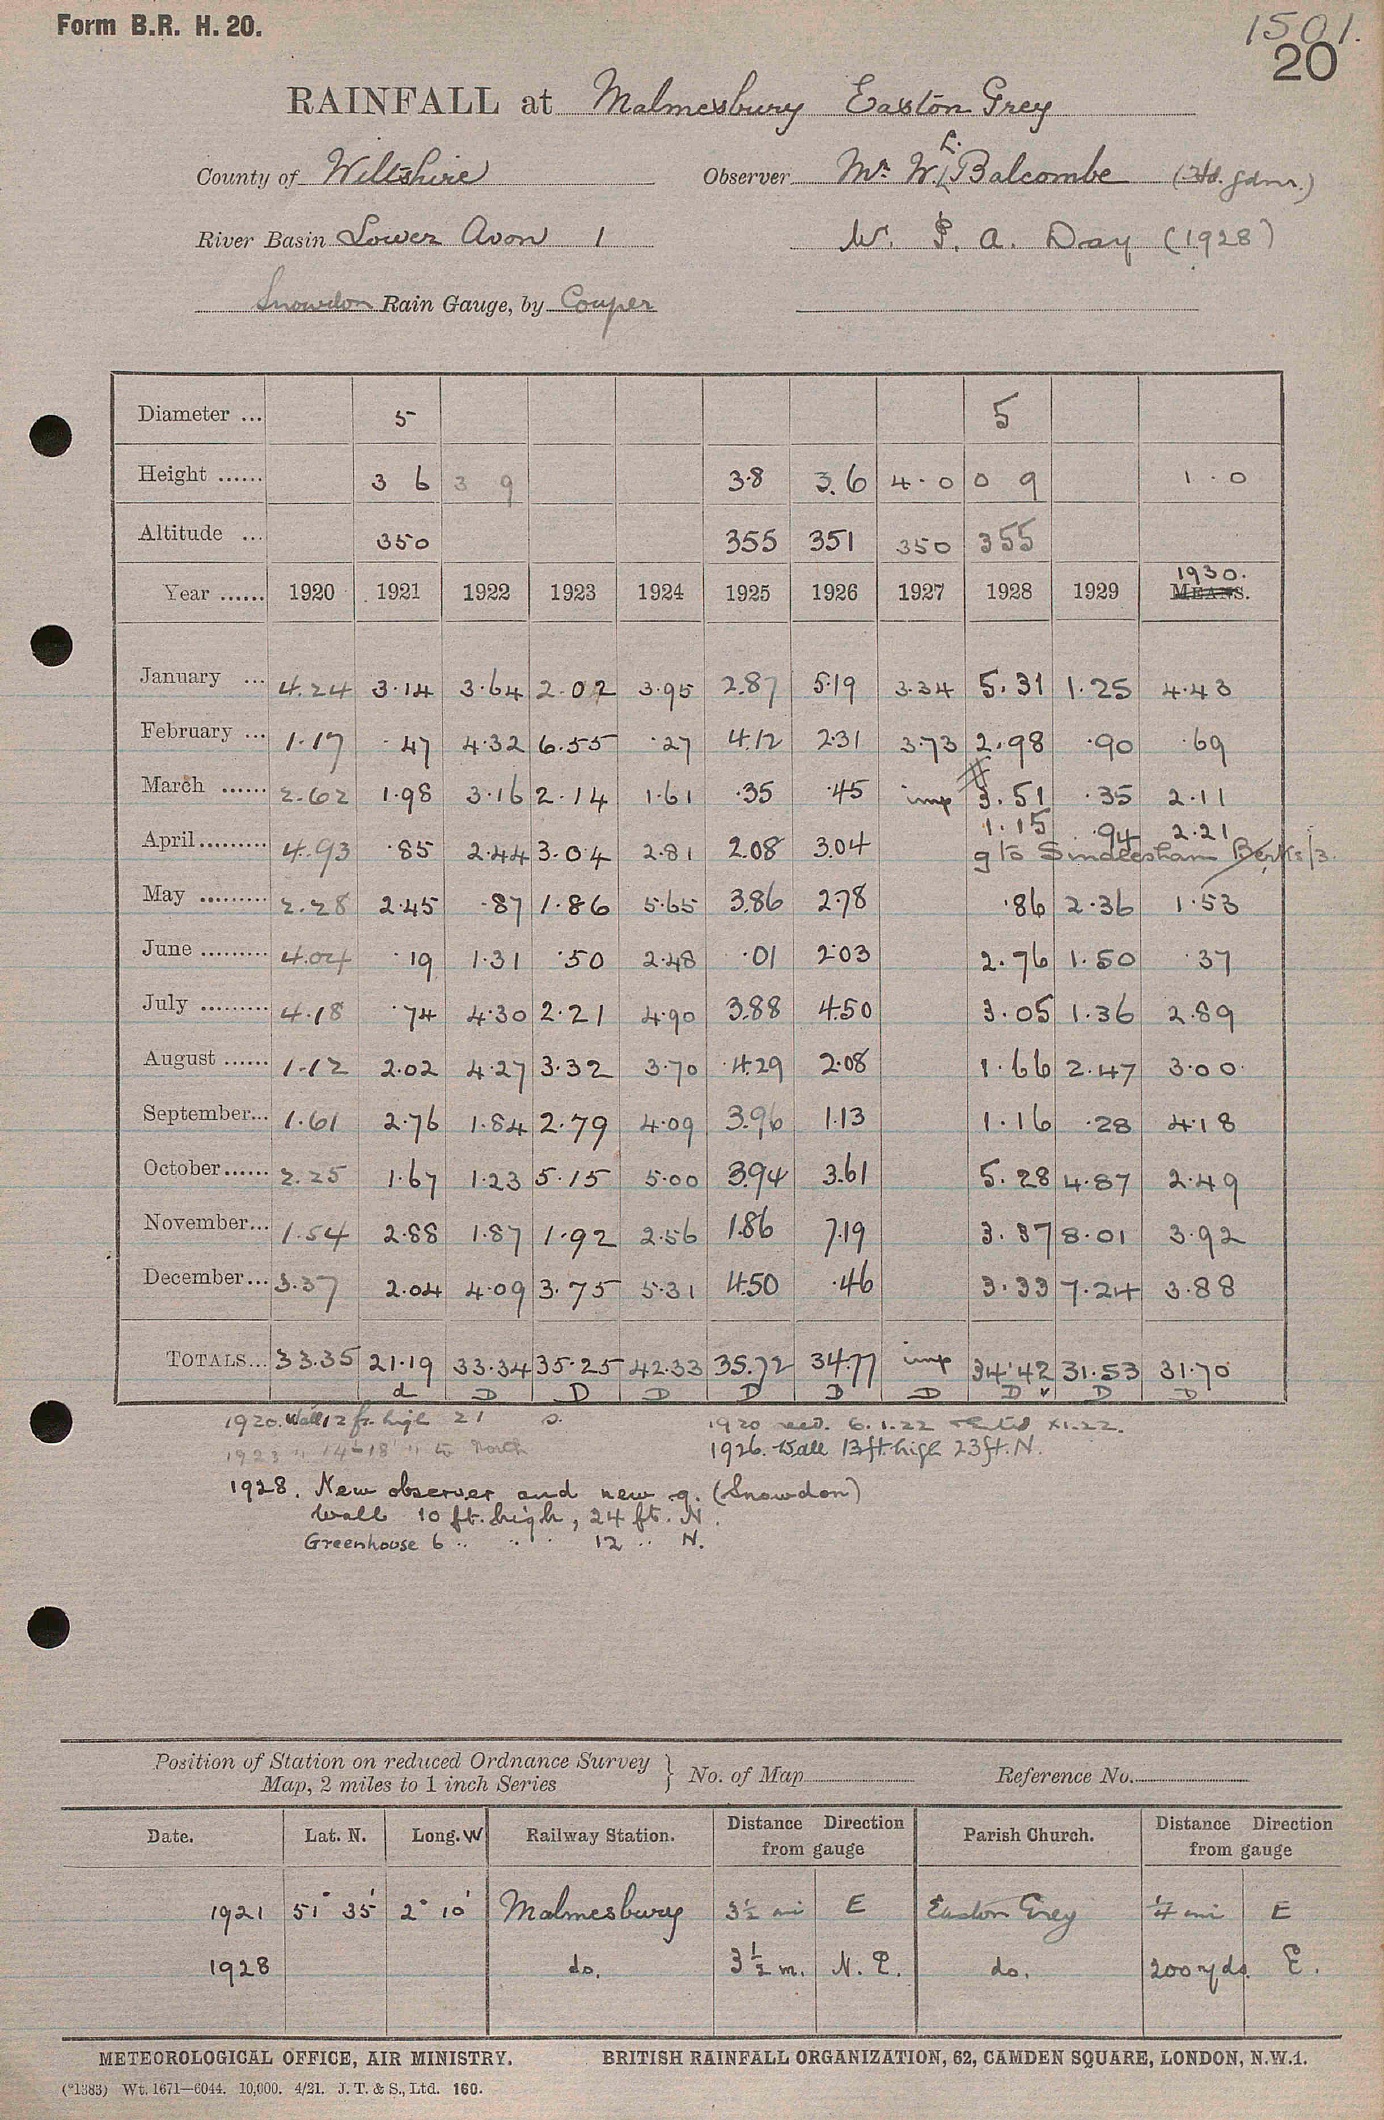 Form B.R. H. 20.
1501.
20
RAINFALL at Malmesbury Easton Grey
County of Wiltshire Observer Mr. W. L. Balcombe (Hd. gdnr.)
River Basin Lower Avon 1 W. P. A. Day (1928)
Snowdon Rain Gauge, by Couper
Diameter ... 5 5
Height ...... 3 6 3 9 3.8 3.6 4.0 0 9 1.0
Altitude ... 350 355 351 350 355
1930.
Year ...... 1920 1921 1922 1923 1924 1925 1926 1927 1928 1929 MEANS.
January ... 4.24 3.14 3.64 2.02 3.95 2.87 5.19 3.34 5.31 1.25 4.43
February ... 1.17 .47 4.32 6.55 .27 4.12 2.31 3.73 2.98 .90 .69
March ...... 2.62 1.98 3.16 2.14 1.61 .35 .45 imp 3.51 .35 2.11
April ......... 4.93 .85 2.44 3.04 2.81 2.08 3.04 1.15 .94 2.21
g to Sindlesham Berks/3.
May ......... 2.28 2.45 .87 1.86 5.65 3.86 2.78 .86 2.36 1.53
June ......... 4.04 .19 1.31 .50 2.48 .01 2.03 2.76 1.50 .37
July ......... 4.18 .74 4.30 2.21 4.90 3.88 4.50 3.05 1.36 2.89
August ...... 1.12 2.02 4.27 3.32 3.70 4.29 2.08 1.66 2.47 3.00
September... 1.61 2.76 1.84 2.79 4.09 3.96 1.13 1.16 .28 4.18
October...... 2.25 1.67 1.23 5.15 5.00 3.94 3.61 5.28 4.87 2.49
November... 1.54 2.88 1.87 1.92 2.56 1.86 7.19 3.37 8.01 3.92
December... 3.37 2.04 4.09 3.75 5.31 4.50 .46 3.33 7.24 3.88
TOTALS... 33.35 21.19 33.34 35.25 42.33 35.72 34.77 imp 34.42 31.53 31.70
d D D D D D D D v D D
1920. Wall 12 ft. high 21 S. 1920 recd. 6.1.22 XI.22.
1923 " 14-18' " to North 1926. Wall 13ft. high 23ft. N.
1928. New observer and new g. (Snowdon)
Wall 10 ft. high, 24 ft. N.
Greenhouse 6 .. .. 12 .. N.
Position of Station on reduced Ordnance Survey
Map, 2 miles to 1 inch Series } No. of Map Reference No.
Date. Lat. N. Long. W Railway Station. Distance Direction from gauge Parish Church. Distance Direction from gauge
1921 51° 35' 2° 10' Malmesbury 3½ mi E Easton Grey ¼ mi E
1928 do. 3½ m. N. E. do. 200 yds. E.
METEOROLOGICAL OFFICE, AIR MINISTRY. BRITISH RAINFALL ORGANIZATION, 62, CAMDEN SQUARE, LONDON, N.W.1.
(*1383) Wt. 1671—6044. 10,000. 4/21. J. T. & S., Ltd. 160.